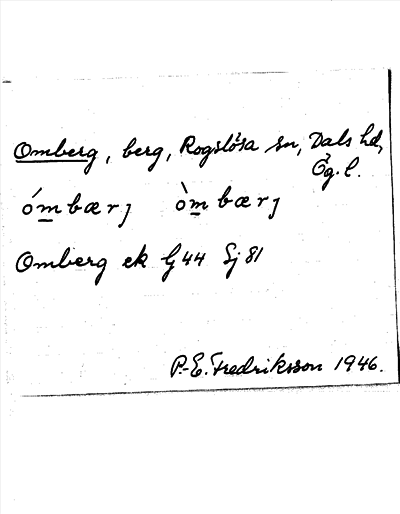 Omberg, berg, Rogslösa sn, Dals hd,
Ög. l.
óm̲bærj òm̲bærj
Omberg ek G44 Sj 81
P.-E. Fredriksson 1946.